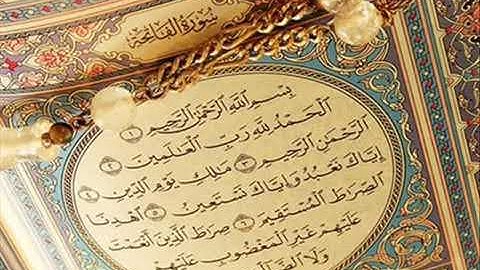 سُورَةُ الْفَاتِحَةِ
بِسْمِ ٱللَّهِ ٱلرَّحْمَٰنِ ٱلرَّحِيمِ ١
ٱلْحَمْدُ لِلَّهِ رَبِّ ٱلْعَٰلَمِينَ ٢
ٱلرَّحْمَٰنِ ٱلرَّحِيمِ ٣ مَٰلِكِ يَوْمِ ٱلدِّينِ ٤
إِيَّاكَ نَعْبُدُ وَإِيَّاكَ نَسْتَعِينُ ٥ ٱهْدِنَا
ٱلصِّرَٰطَ ٱلْمُسْتَقِيمَ ٦ صِرَٰطَ ٱلَّذِينَ أَنْعَمْتَ
عَلَيْهِمْ غَيْرِ ٱلْمَغْضُوبِ عَلَيْهِمْ
وَلَا